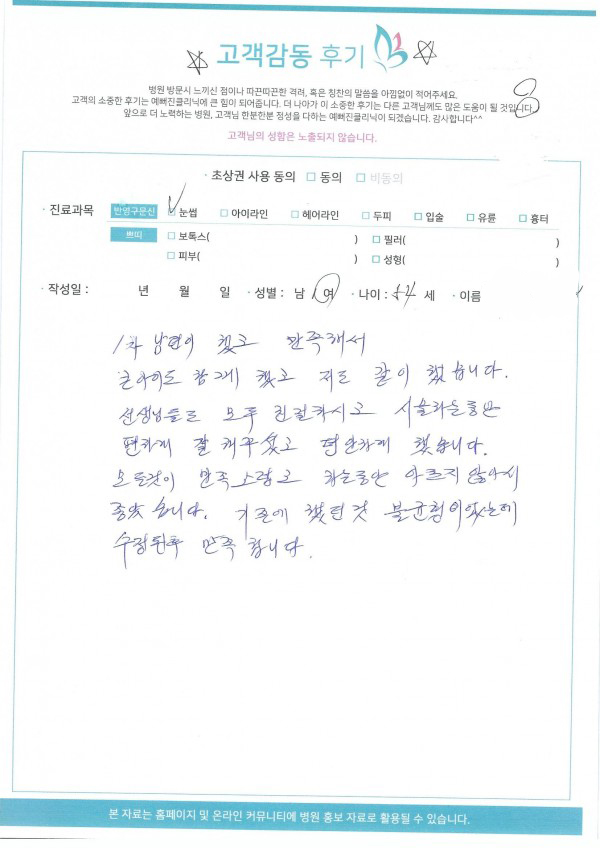 고객감동 후기
병원 방문시 느끼신 점이나 따끈따끈한 격려, 혹은 칭찬의 말씀을 아낌없이 적어주세요.
고객의 소중한 후기는 예뻐진클리닉에 큰 힘이 되어줍니다. 더 나아가 이 소중한 후기는 다른 고객님께도 많은 도움이 될 것입니다.
앞으로 더 노력하는 병원, 고객님 한분한분 정성을 다하는 예뻐진클리닉이 되겠습니다. 감사합니다^^
고객님의 성함은 노출되지 않습니다.
· 초상권 사용 동의 □ 동의 □ 비동의
· 진료과목 반영구문신 □ 눈썹 □ 아이라인 □ 헤어라인 □ 두피 □ 입술 □ 유륜 □ 흉터
쁘띠 □ 보톡스( ) □ 필러( )
□ 피부( ) □ 성형( )
· 작성일 : 년 월 일 · 성별 : 남 여 · 나이 : 54 세 · 이름
1차 남편이 했고 만족해서
큰아이도 함께 했고 저도 같이 했습니다.
선생님들도 모두 친절하시고 시술하는동안
편하게 잘 해주셨고 편안하게 했습니다.
모든것이 만족스럽고 하는동안 아프지 않아서
좋았습니다. 기존에 했던것 불균형이었는데
수정된후 만족합니다.
본 자료는 홈페이지 및 온라인 커뮤니티에 병원 홍보 자료로 활용될 수 있습니다.